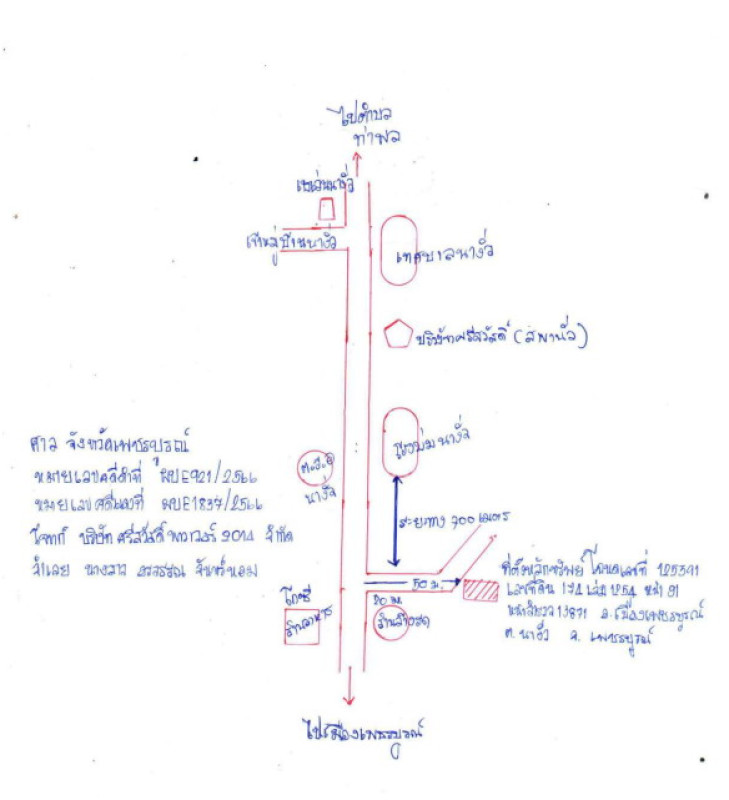 ไปตำบล
ท่าพล
เข้าหมู่บ้านนางั่ว
เทศบาลนางั่ว
บริษัทศรีสวัสดิ์ (สพานั่ว)
โรงบ่มนางั่ว
นางั่ว
ศาล จังหวัดเพชรบูรณ์
หมายเลขคดีดำที่ ผบE921/2566
หมายเลขคดีแดงที่ ผบE1837/2566
โจทก์ บริษัท ศรีสวัสดิ์ พาวเวอร์ 2014 จำกัด
จำเลย นางสาว อรวรรณ จันทร์หอม
ระยะทาง 700 เมตร
50 ม.
20 ม.
ที่ตั้งหลักทรัพย์ โฉนดเลขที่ 125391
เลขที่ดิน 174 เล่ม 1254 หน้า 91
หน้าสำรวจ 13871 อ.เมืองเพชรบูรณ์
ต. นางั่ว จ. เพชรบูรณ์
โกตี๋
ร้านอาหาร
ไปเมืองเพชรบูรณ์